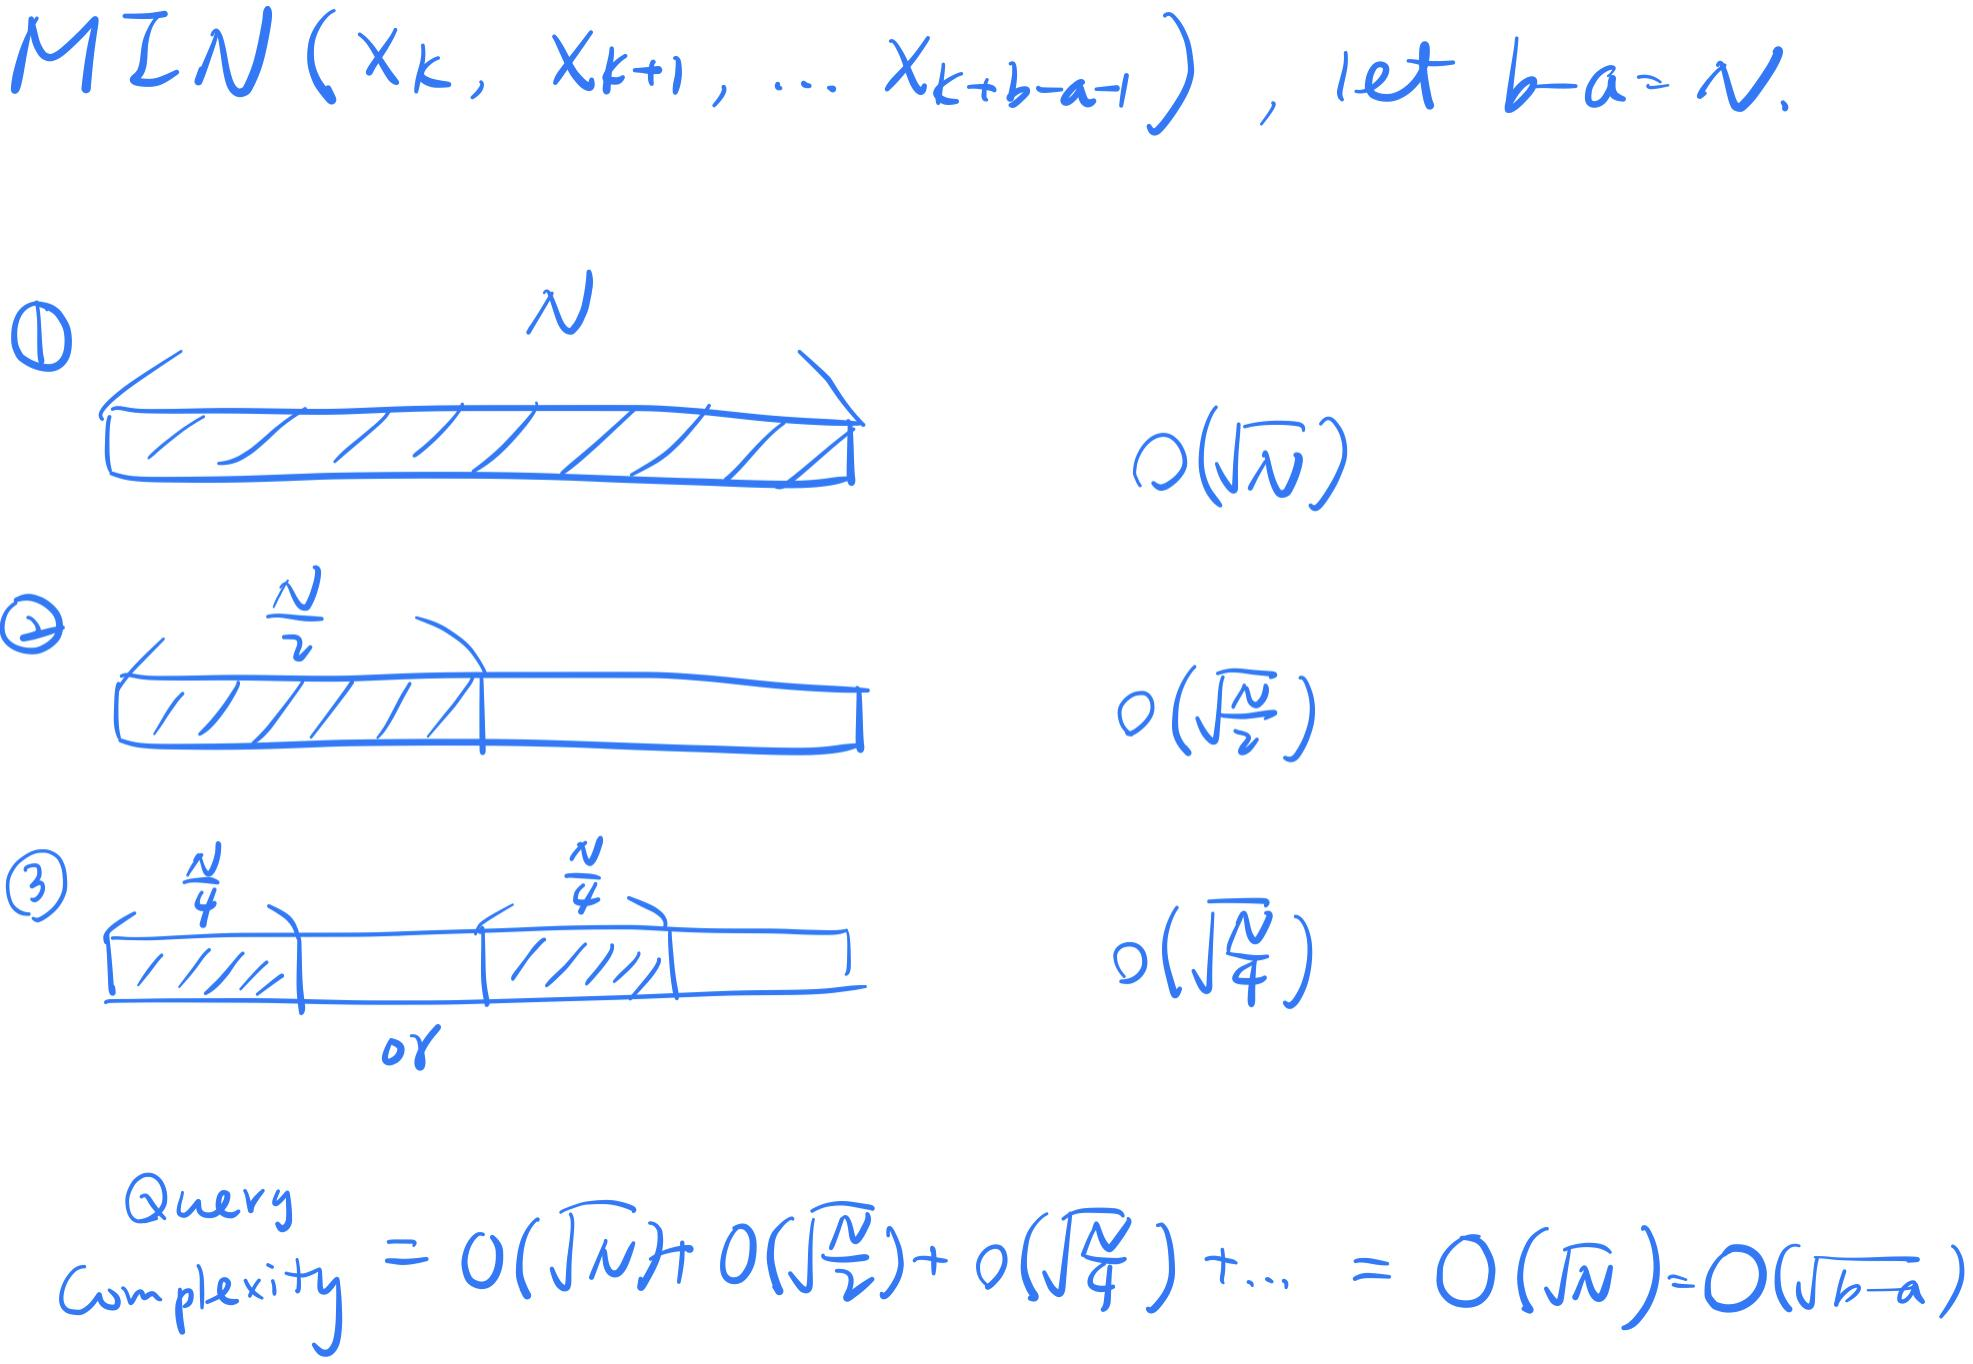 MIN(x_k, x_{k+1}, ... x_{k+b-a-1}), let b-a=N.
① N
O(√N)
② N/2
O(√(N/2))
③ N/4 N/4
O(√(N/4))
or
Query
Complexity = O(√N) + O(√(N/2)) + O(√(N/4)) + ... = O(√N) = O(√(b-a))